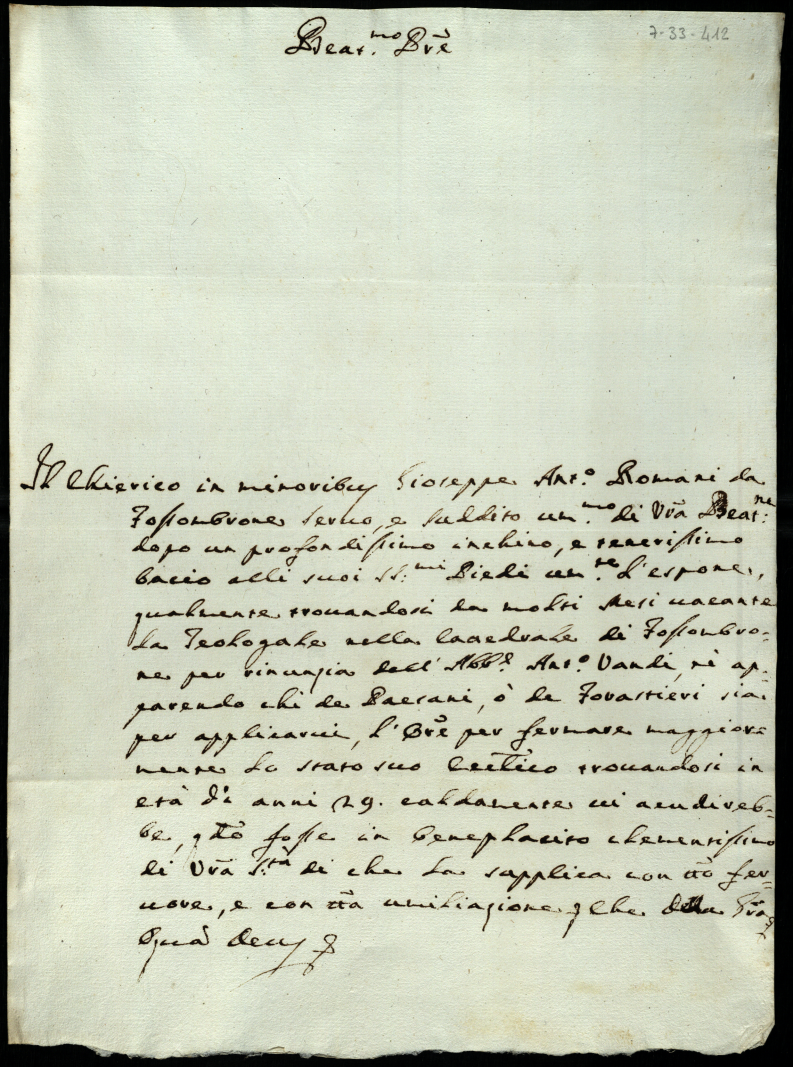 7-33-412
Beat.mo Pre
Il Chierico in minoribus Gioseppe Ant.o Romani da
Fossombrone servo, e suddito um.mo di Vra Beat.ne
dopo un profondissimo inchino, e tenerissimo
bacio alli suoi SS:mi Piedi um.te l'espone,
qualmente trovandosi da molti Mesi vacante
la Teologale nella Catedrale di Fossombro-
ne per rinunzia dell' Abb.e Ant.o Vandi, nè ap-
parendo chi de Paesani, ò de Forastieri sia
per applicarvi, l'Ore per fermare maggior-
mente lo stato suo trovandosi in
età di anni 29. caldamente vi acudireb-
be, qdo fosse in beneplacito clementissimo
di Vra S.tà di che la supplica con tto fer-
vore, e con tta umiliazione, che della Gra
Quam Deus